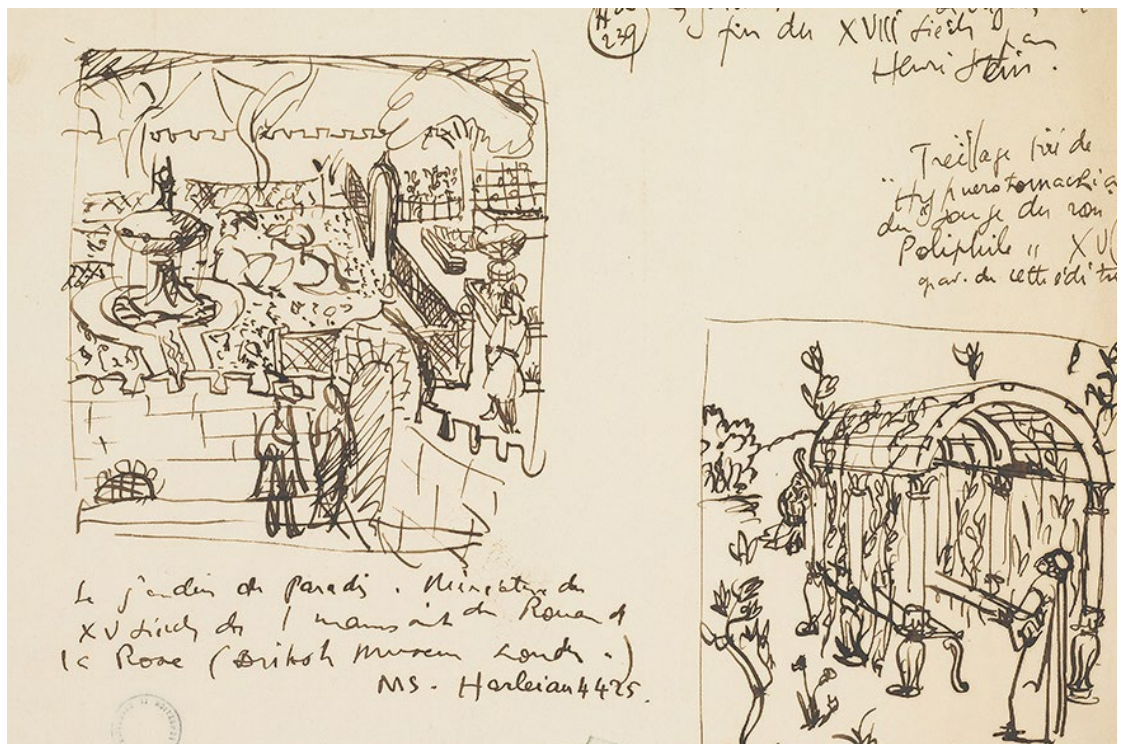 239
fin du XVIII siècle par
Henri Stein.
Treillage tiré de
"Hypnerotomachia
du songe du
Poliphile " XV
grav. de cette édit
Le jardin de Paradis. Miniature du
XV siècle du manuscrit du Roman d
la Rose (British Museum Londr.)
MS. Harleian 4425.